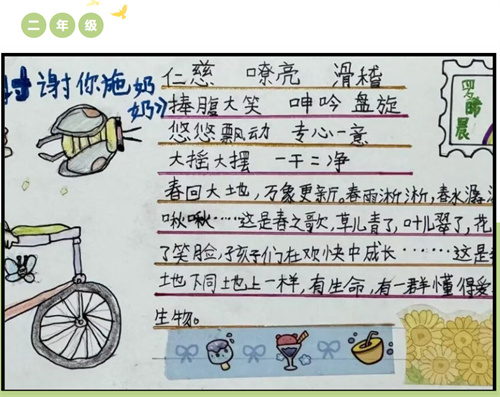 二年级
谢你施奶
奶》
仁慈 嘹亮 滑稽
捧腹大笑 呻吟 盘旋
悠悠飘动 专心一意
大摇大摆 一干二净
春回大地，万象更新。春雨淅淅，春水潺
啾啾……这是春之歌，草儿青了，叶儿翠了，花
了笑脸，孩子们在欢快中成长……这是
地下同地上一样，有生命，有一群懂得爱
生物。
晨